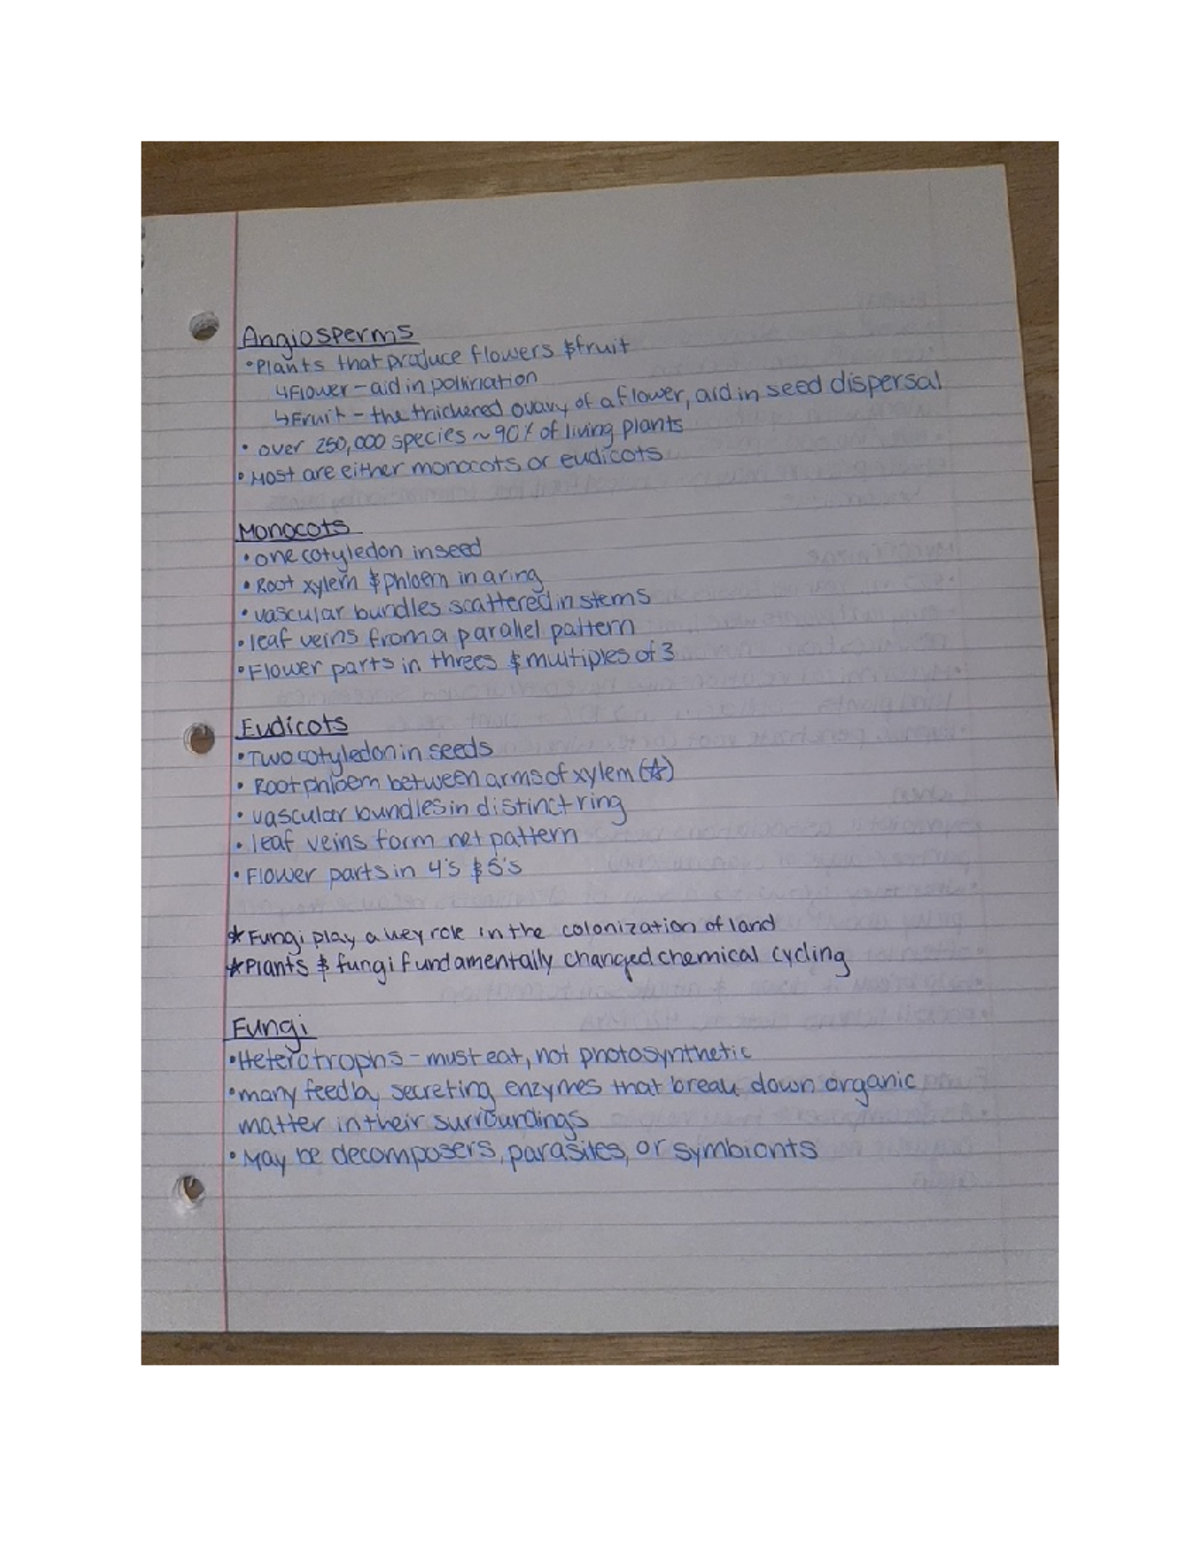 Angiosperms
•Plants that produce flowers & fruit
↳Flower – aid in pollination
↳Fruit – the thickened ovary of a flower, aid in seed dispersal
• over 250,000 species ~ 90% of living plants
• Most are either monocots or eudicots
Monocots
• one cotyledon in seed
• Root xylem & phloem in a ring
• vascular bundles scattered in stems
• leaf veins from a parallel pattern
• Flower parts in threes & multiples of 3
Eudicots
• Two cotyledon in seeds
• Root phloem between arms of xylem (☆)
• vascular bundles in distinct ring
• leaf veins form net pattern
• Flower parts in 4's & 5's
★Fungi play a key role in the colonization of land
★Plants & fungi fundamentally changed chemical cycling
Fungi
•Heterotrophs – must eat, not photosynthetic
•many feed by secreting enzymes that break down organic
matter in their surroundings
• May be decomposers, parasites, or symbionts